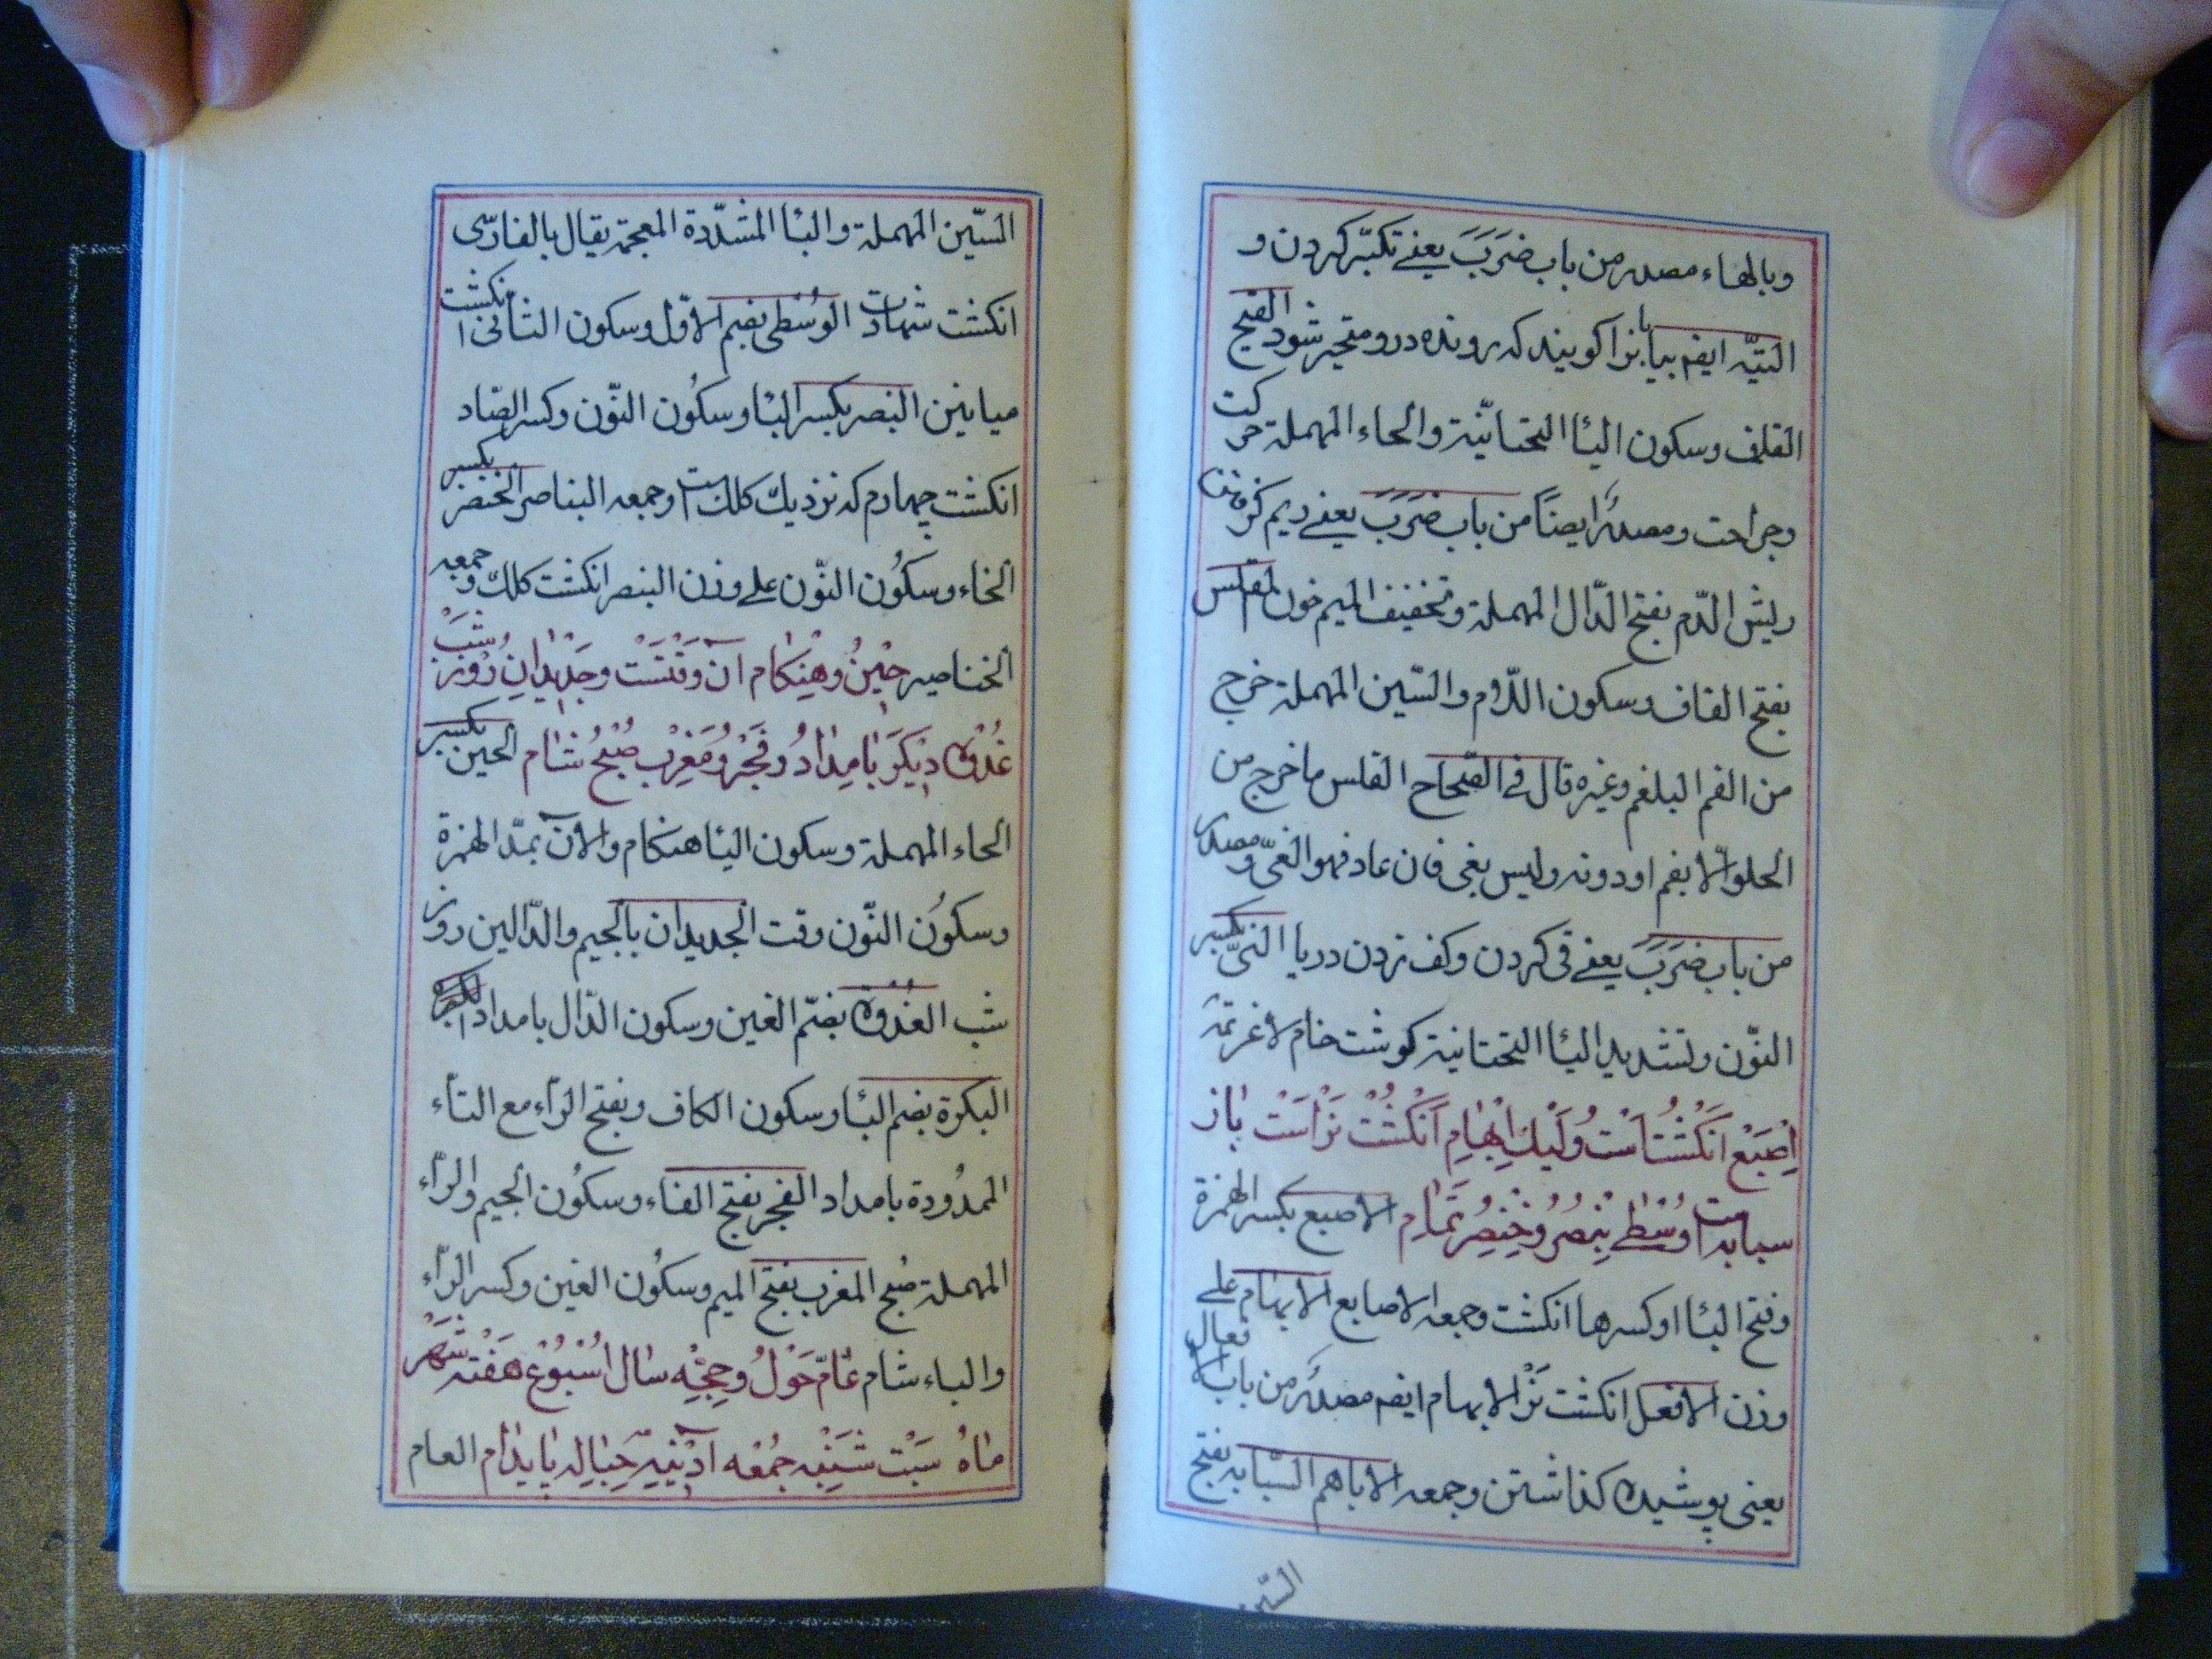 وبالهاء مصدر من باب ضَرَبَ يعنے تكبّر كردن و
التيّه ايضم بيابانرا كويند كه رونده درو متحير شود القيح
القاف وسكون اليأ التحتانيّة والحاء المهملة حركت
وجراحت ومصدرُ ايضاً من باب ضَرَبَ يعنے ريم كرفتن
ريش الدّم بفتح الدّال المهملة وتخفيف الميم خون القلس
بفتح القاف وسكون اللّام والسّين المهملة خرج
من الفم البلغم وغيره قال فے الصّحاح القلس ما خرج من
الحلو الّا بفم او دونه وليس بقى فان عاد فهو القىّ ومصدر
من باب ضَرَبَ يعنے قى كردن وكف زدن دريا النىّ بكسر
النّون وتشديد اليأ التحتانية كوشت خام لاغر تمّه
اِصْبَعْ اَنْكُشْتْ اَسْت وُلَيْك اِبْهامِ اَنْكُشْتْ نَرْاسَتْ باز
سبابه است وُسْطٰے بِنْصِرُ وخِنْصِرْ تَمام الاصبع بكسر الهمزة
وفتح البأ او كسرها انكشت وجمعه الاصابع الابهام علے
وزن الافعل انكشت نَرْ الابهام ايضم مصدرُ من باب الافعال
يعنى پوشيده كذاشتن وجمعه الاباهم السّبابه بفتح
السّين
السّين المهملة والبأ المشدّدة المعجمة يقال بالفارسى
انكشت شهادت الوُسْطٰى بضم الاوّل وسكون الثّانى انكشت
ميانين البنصر بكسر البأ وسكُون النّون وكسر الصّاد
انكشت چهارم كه نزديك كلك است وجمعه البناصر الخنصر بكسر
الخاء وسكُون النّون علے وزن البنصر انكشت كلك وجمعه
الخناصير حِيْنُ وهَنِكٰام آنَ وقتَسْت وجَدْيدانِ رُوز شَبْ
غُدْوَه دِيْكَرَ بٰامِدٰادُ وفَجْرُ ومَغْرِبْ صُبْحُ شٰام الحين بكسر
الحاء المهملة وسكون اليأ هنكام والآن بمدّ الهمزة
وسكُون النّون وقت الجديدان بالجيم والدّالين روز
شب الغُدْوَة بضمّ الغين وسكون الدّال بامداد
البكرة بضم البأ وسكون الكاف وبفتح الرّاء مع التاء
الممدُودة بامداد الفجر بفتح الفاء وسكُون الجيم والراء
المهملة صُبح المغرب بفتح الميم وسكُون الغين وكسر الرّاء
والباء شام عٰامّ حَوْلُ وحِجّه سٰال اُسْبُوْع هَفْته شَهْر
مٰاهُ سَبْت شَنْبِه جُمْعَه آدينه حبٰاله يا يدام العام